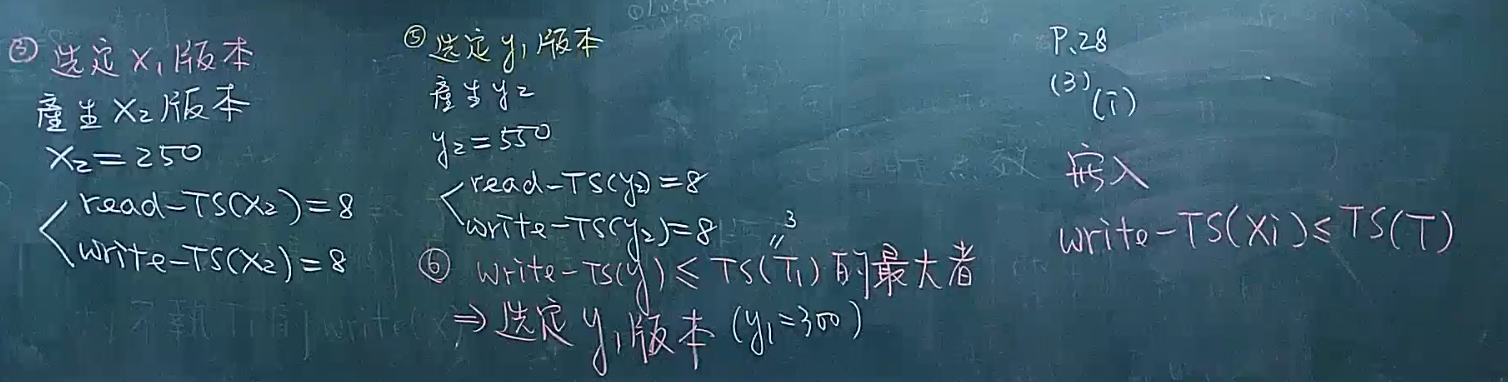 ③ 选定 X₁版本
產生 X₂版本
X₂=250
read-TS(X₂)=8
write-TS(X₂)=8
⑤ 选定 y₁版本
產生 y₂
y₂=550
read-TS(y₂)=8
write-TS(y₂)=8
3
〃
⑥ write-TS(y) ≤ TS(T₁) 的最大者
⇒ 选定 y₁版本 (y₁=300)
P.28
(3) (i)
write-TS(Xi) ≤ TS(T)